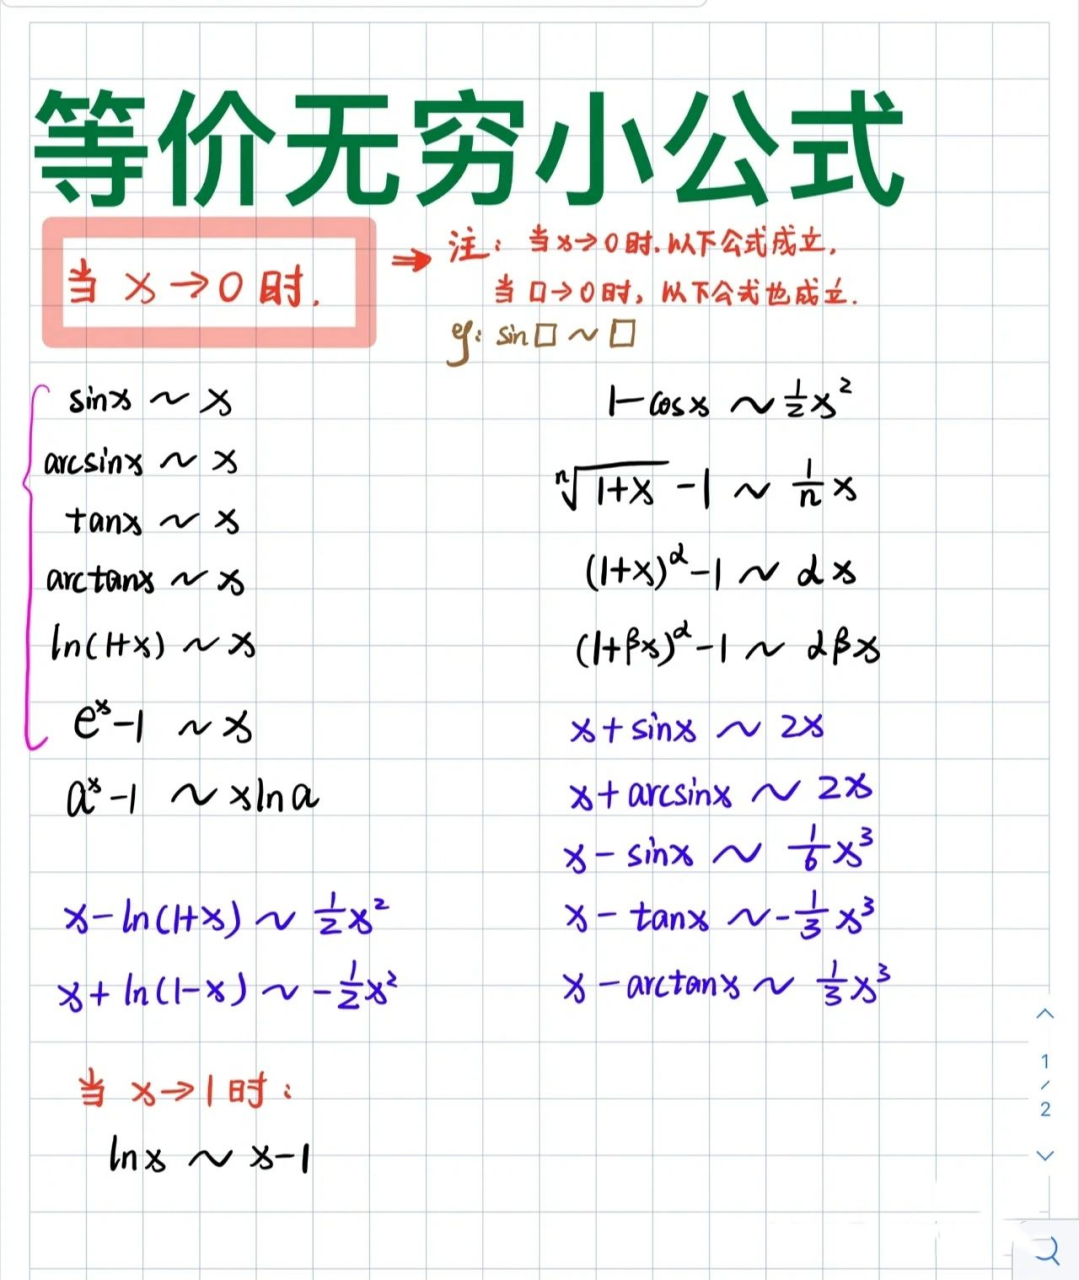 等价无穷小公式
当 x→0 时.
⇒ 注: 当x→0时.以下公式成立.
当 □→0时, 以下公式也成立.
eg: sin□ ~ □
sinx ~ x
arcsinx ~ x
tanx ~ x
arctanx ~ x
ln(1+x) ~ x
eˣ-1 ~ x
aˣ-1 ~ xlna
x-ln(1+x) ~ ½x²
x+ln(1-x) ~ -½x²
1-cosx ~ ½x²
ⁿ√(1+x) -1 ~ 1/n x
(1+x)^α-1 ~ αx
(1+βx)^α-1 ~ αβx
x+sinx ~ 2x
x+arcsinx ~ 2x
x-sinx ~ 1/6 x³
x-tanx ~ -1/3 x³
x-arctanx ~ 1/3 x³
当 x→1时:
lnx ~ x-1
1
/
2